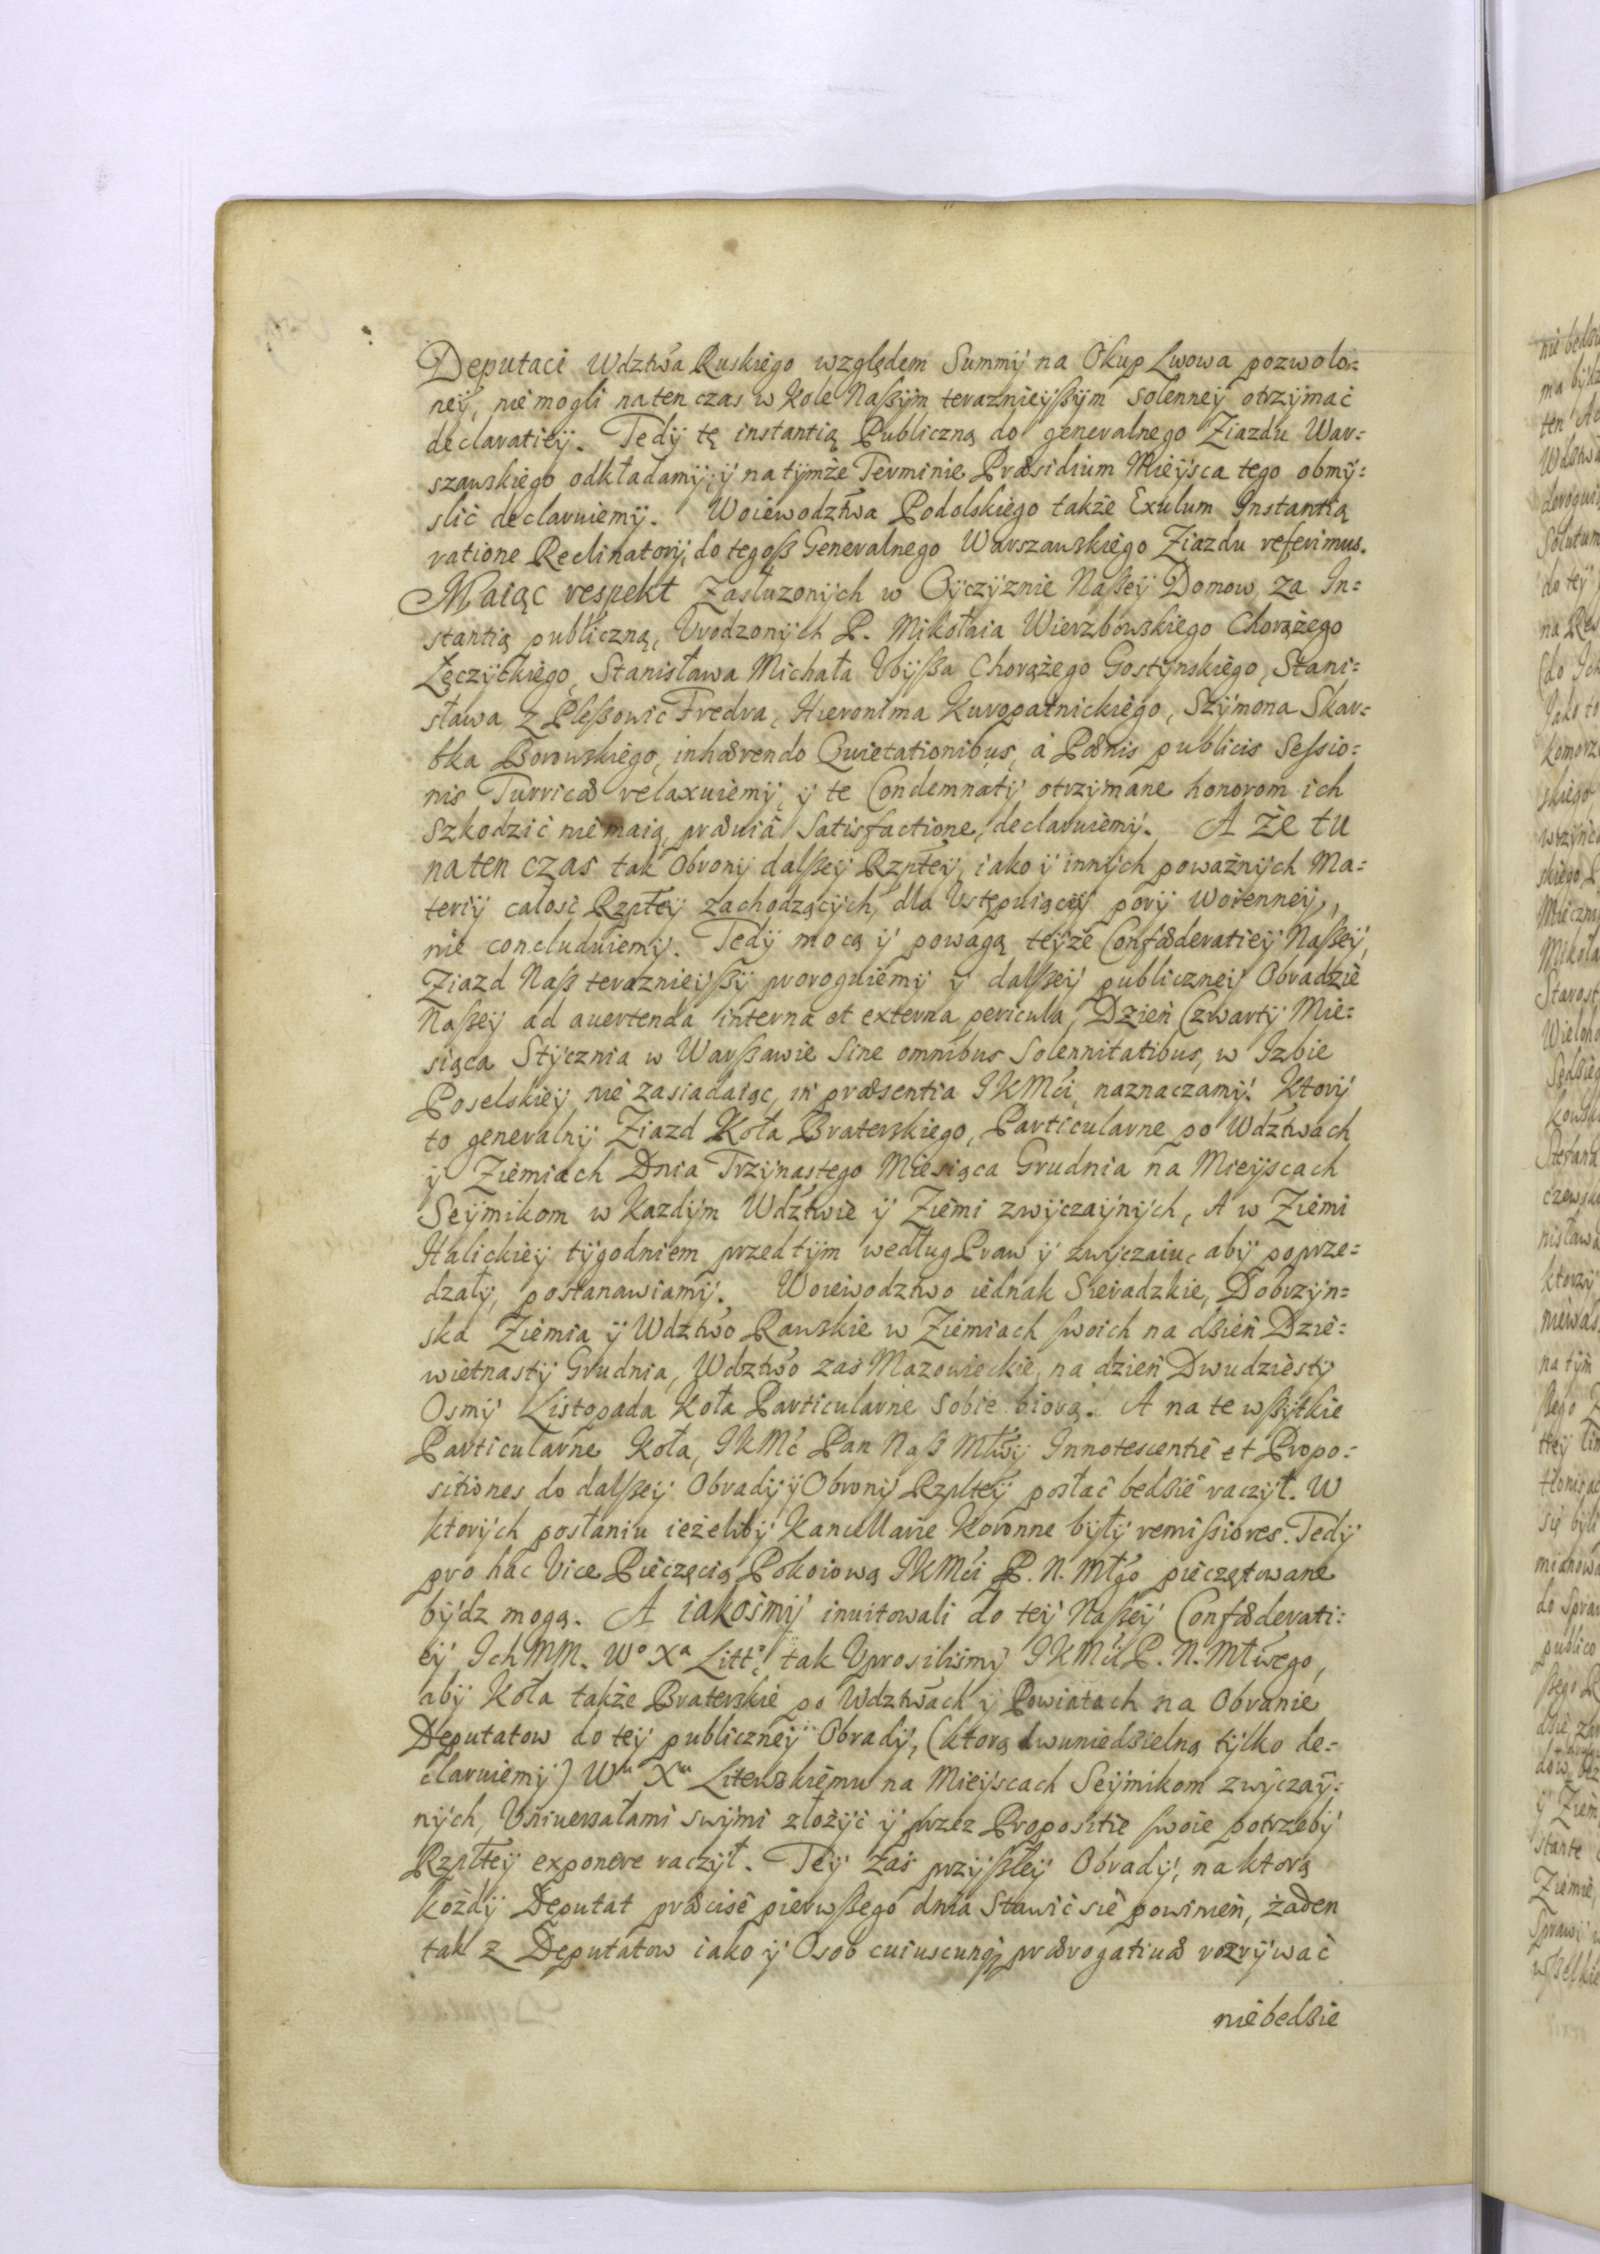 Deputaci Wdztwa Ruskiego względem Summy na Okup Lwowa pozwolo=
ney, nie mogli na ten czas w Kole Naszym teraznieyszym Solenney otrzymać
declaratiey. Tedy tę instantią Publiczną do generalnego Ziazdu War=
szawskiego odkładamy; y na tymże Terminie Præsidium Mieysca tego obmy=
slić declaruiemy. Woiewodztwa Podolskiego także Exulum Instantią
ratione Reclinatory, do tegosz Generalnego Warszawskiego Ziazdu referimus.
Maiąc respekt Zasłuzonych w Oyczyznie Naszey Domow, za In=
stantią publiczną, Urodzonych P. Mikołaia Wierzbowskiego Chorążego
Łęczyckiego, Stanisława Michała Ubysza Chorążego Gostynskiego, Stani=
sława z Pleszowic Fredra, Hieronima Kuropatnickiego, Szymona Skar=
bka Borowskiego, inhærendo Quietationibus, à Pænis publicis Sessio=
nis Turricæ relaxuiemy, y te Condemnaty otrzymane honorom ich
szkodzić nie maią, præuiâ Satisfactione, declaruiemy. A że tu
na ten czas tak Obrony dalszey Rzpltey, iako y innych poważnych Ma=
teriy całość Rzpltey zachodzących, dla Ustępuiącey pory woienney,
nie concluduiemy. Tedy mocą y powagą teyże Confæderatiey Naszey,
Ziazd Nasz teraznieyszy proroguiemy y dalszey publiczney Obradzie
Naszey ad auertenda interna et externa pericula, Dzień Czwarty Mie=
siąca Stycznia w Warszawie sine omnibus Solennitatibus, w Izbie
Poselskiey nie zasiadaiąc, in præsentia IKMći, naznaczamy. Ktory
to generalny Ziazd Koła Braterskiego, Particularne po Wdztwach
y Ziemiach Dnia Trzynastego Miesiąca Grudnia na Mieyscach
Seymikom w Kazdym Wdztwie y Ziemi zwyczaynych, A w Ziemi
Halickiey tygodniem przed tym według Praw y zwyczaiu, aby poprze=
dzały, postanawiamy. Woiewodztwo iednak Sieradzkie, Dobrzyn=
ska Ziemia y Wdztwo Rawskie w Ziemiach swoich na dzień Dzie=
wietnasty Grudnia, Wdztwo zaś Mazowieckie, na dzień Dwudziesty
Osmy Listopada Koła Particularne Sobie biorą. A na te wszytkie
Particularne Koła, IKMć Pan Nasz Młwy Innotescentie et Propo=
sitiones do dalszey Obrady y Obrony Rzpltey posłać będzie raczył. W
ktorych posłaniu ieżeliby Kancellarie Koronne były remissiores. Tedy
pro hac Vice Pieczęcią Pokoiową IKMći P. N. Młgo pieczętowane
bydz mogą. A iakośmy inuitowali do tey Naszey Confæderati=
ey Ich MM. Wo Xa Litto, tak Uprosiliśmy IKMći P. N. Młwego,
aby Koła także Braterskie po Wdztwach y Powiatach na Obranie
Deputatow do tey publiczney Obrady, (ktorą dwuniedzielną tylko de=
claruiemy) Wu Xu Litewskiemu na Mieyscach Seymikom zwyczay=
nych, Uniuersałami swymi złożyć y przez Propositie swoie potrzeby
Rzpltey exponere raczył. Tey zaś przyszłey Obrady, na ktorą
kożdy Deputat præcisè pierwszego dnia stawić się powinien, żaden
tak z Deputatow iako y Osob cuiuscunq prærogatiuæ rozrywać
nie bedzie